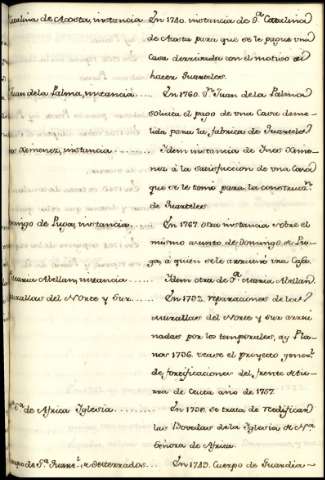 talina de Acosta, instancia En 1740. instancia de D.ª Catalina
de Acosta para que se le pague una
Casa derrivada con el motivo de
hacer Quarteles.
Juan de la Palma, instancia ...... En 1760. D.n Juan de la Palma
solicita el pago de una Casa demo-
lida para la fabrica de Quarteles
Ximenez, instancia ............ Idem instancia de Ines Xime-
nez á la satisfaccion de una Casa
que se le tomo para la construc.n
de Quarteles.
mingo de Luga, instancia .. En 1767. otra instancia sobre el
mismo asunto de Domingo de Lu-
ga, á quien se le arruinó una Casa.
Maria Abellan, instancia ...... Idem otra de D.ª Maria Abellan
Murallas del Norte y Sur ...... En 1732. reparaciones de las
Murallas del Norte y Sur arrui-
nadas por los temporales, ay Pla-
nos 1736. vease el proyecto gener.l
de fortificaciones del frente de tie-
rra de Ceuta año de 1757.
S.ª de Africa Yglesia ............ En 1708. se trata de reedificar
las Bovedas de la Yglesia de N.ra
Señora de Africa.
Desterrados ..... En 1743. Cuerpo de Guardia